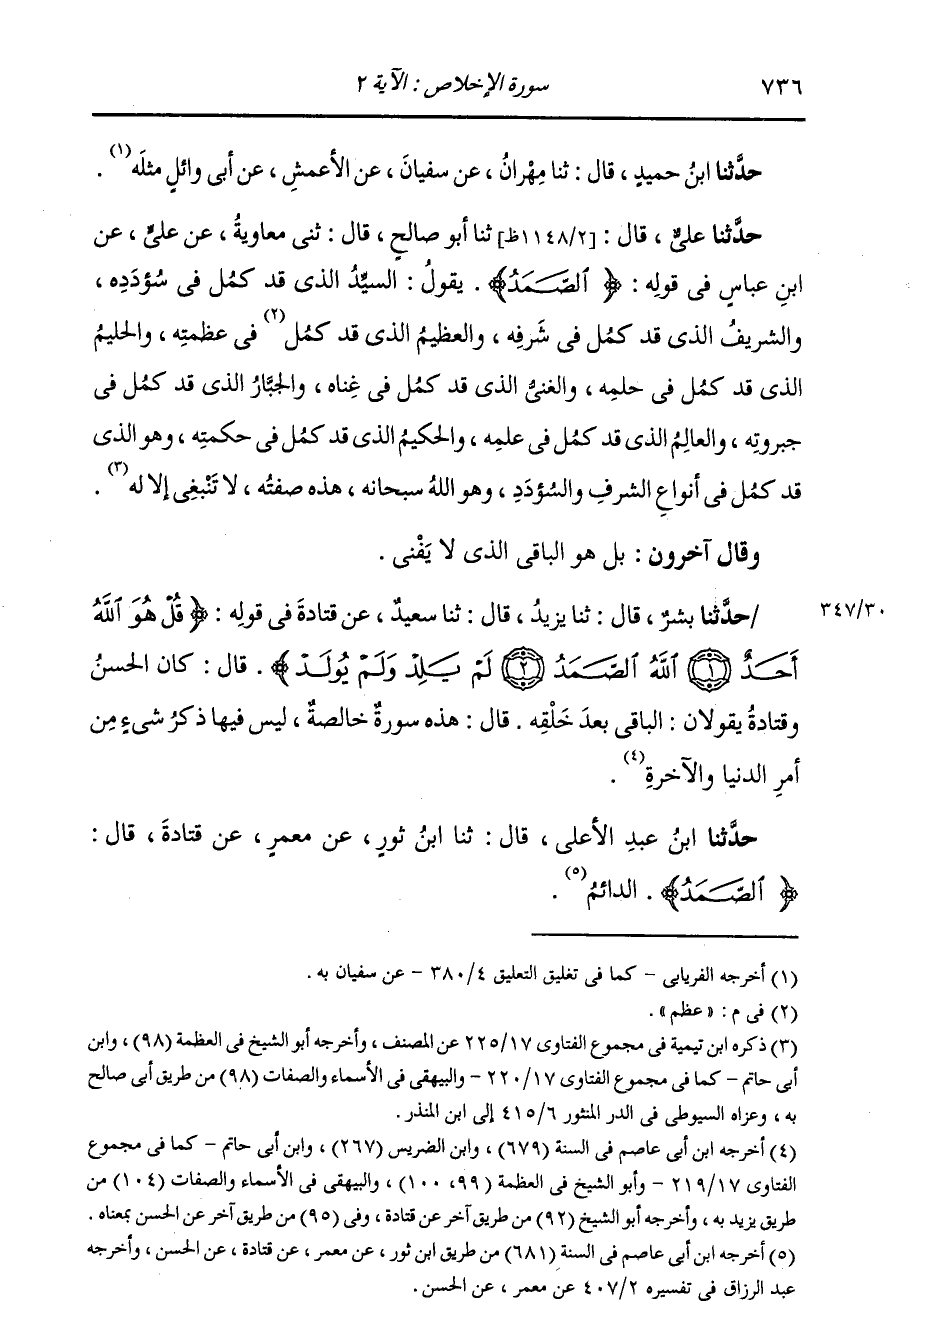 ٧٣٦ سورة الإخلاص : الآية ٢
حدَّثنا ابنُ حميدٍ ، قال : ثنا مِهْرانُ ، عن سفيانَ ، عن الأعمشِ ، عن أبى وائلٍ مثلَه(١) .
حدَّثنا علىٌّ ، قال : [١١٤٨/٢ظ] ثنا أبو صالحٍ ، قال : ثنى معاويةُ ، عن علىٍّ ، عن
ابنِ عباسٍ فى قولِه : ﴿ ٱلصَّمَدُ ﴾ . يقولُ : السيِّدُ الذى قد كمُل فى سُؤدَدِه ،
والشريفُ الذى قد كمُل فى شَرفِه ، والعظيمُ الذى قد كمُل(٢) فى عظمتِه ، والحليمُ
الذى قد كمُل فى حلمِه ، والغنىُّ الذى قد كمُل فى غِناه ، والجبَّارُ الذى قد كمُل فى
جبروتِه ، والعالِمُ الذى قد كمُل فى علمِه ، والحكيمُ الذى قد كمُل فى حكمتِه ، وهو الذى
قد كمُل فى أنواعِ الشرفِ والسُؤدَدِ ، وهو اللهُ سبحانه ، هذه صفتُه ، لا تَنْبغِى إلا له(٣) .
وقال آخرون : بل هو الباقى الذى لا يَفْنى .
٣٤٧/٣٠ /حدَّثنا بشرٌ ، قال : ثنا يزيدُ ، قال : ثنا سعيدٌ ، عن قتادةَ فى قولِه : ﴿ قُلْ هُوَ ٱللَّهُ
أَحَدٌ ۝١ ٱللَّهُ ٱلصَّمَدُ ۝٢ لَمْ يَلِدْ وَلَمْ يُولَدْ ﴾ . قال : كان الحسنُ
وقتادةُ يقولان : الباقى بعدَ خَلْقِه . قال : هذه سورةٌ خالصةٌ ، ليس فيها ذكرُ شىءٍ مِن
أمرِ الدنيا والآخرةِ(٤) .
حدَّثنا ابنُ عبدِ الأعلى ، قال : ثنا ابنُ ثورٍ ، عن معمرٍ ، عن قتادةَ ، قال :
﴿ ٱلصَّمَدُ ﴾ . الدائمُ(٥) .
(١) أخرجه الفريابى - كما فى تغليق التعليق ٣٨٠/٤ - عن سفيان به .
(٢) فى م : « عظم » .
(٣) ذكره ابن تيمية فى مجموع الفتاوى ٢٢٥/١٧ عن المصنف ، وأخرجه أبو الشيخ فى العظمة (٩٨) ، وابن
أبى حاتم - كما فى مجموع الفتاوى ٢٢٠/١٧ - والبيهقى فى الأسماء والصفات (٩٨) من طريق أبى صالح
به ، وعزاه السيوطى فى الدر المنثور ٤١٥/٦ إلى ابن المنذر .
(٤) أخرجه ابن أبى عاصم فى السنة (٦٧٩) ، وابن الضريس (٢٦٧) ، وابن أبى حاتم - كما فى مجموع
الفتاوى ٢١٩/١٧ - وأبو الشيخ فى العظمة (٩٩، ١٠٠) ، والبيهقى فى الأسماء والصفات (١٠٤) من
طريق يزيد به ، وأخرجه أبو الشيخ (٩٢) من طريق آخر عن قتادة ، وفى (٩٥) من طريق آخر عن الحسن بمعناه .
(٥) أخرجه ابن أبى عاصم فى السنة (٦٨١) من طريق ابن ثور ، عن معمر ، عن قتادة ، عن الحسن ، وأخرجه
عبد الرزاق فى تفسيره ٤٠٧/٢ عن معمر ، عن الحسن .